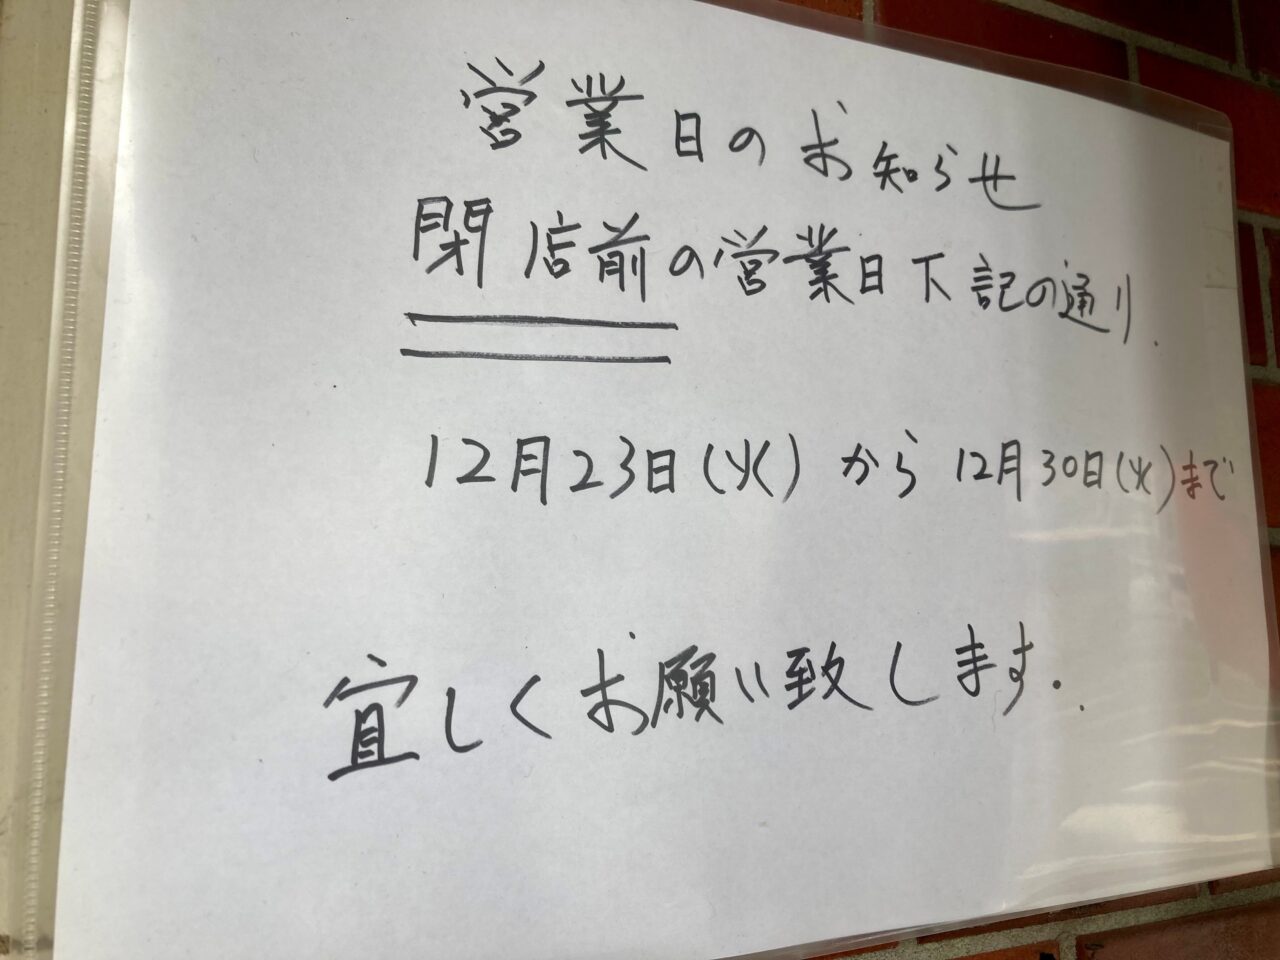 営業日のお知らせ
閉店前の営業日下記の通り.
12月23日(火)から12月30日(火)まで
宜しくお願い致します.